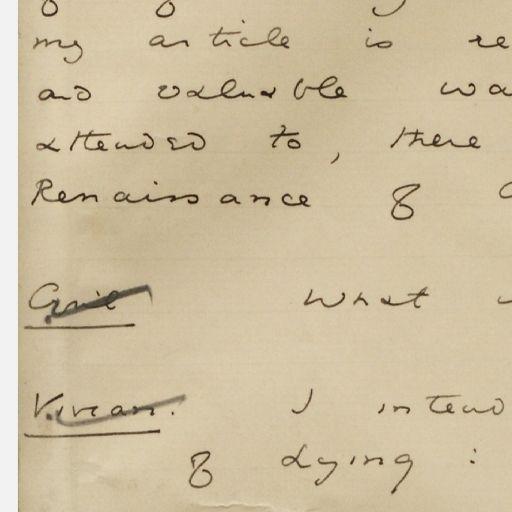 my article is re
and valuable wa
attended to, there
Renaissance of
What
Vivian. I intend
of Lying :